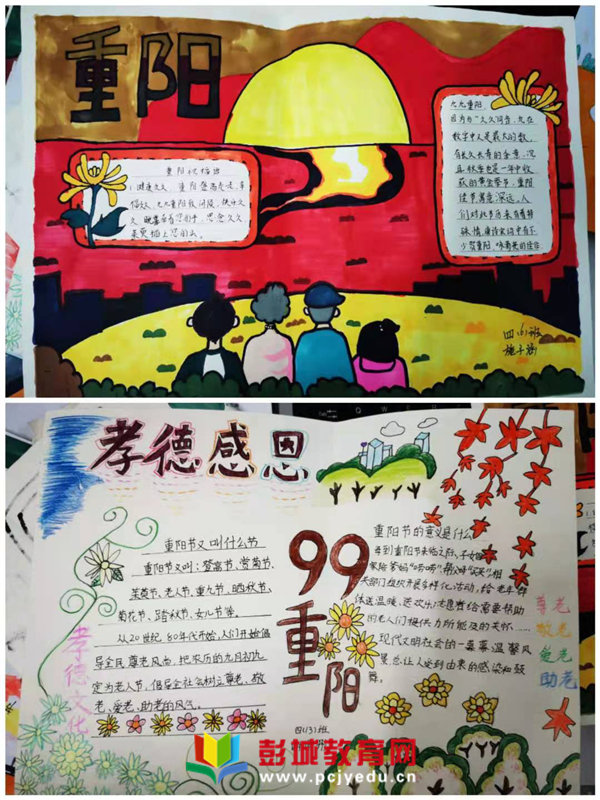 重阳
重阳祝福语
1.健康久久
九九重阳
因为与"久久"同音，九在
数字中又是最大的数，
有长久长寿的含意，况
且秋季也是一年中收
获的黄金季节，重阳
佳节，寓意深远，人
们对此节历来有着特
殊情，唐诗宋词中有不
少贺重阳，咏菊花的佳作
四(6)班
孝德感恩
重阳节又叫什么节
重阳节又叫：登高节、赏菊节、
茱萸节、老人节、重九节、晒秋节、
菊花节、踏秋节、女儿节等。
从20世纪80年代开始，人们开始倡
导全民尊老风尚，把农历的九月初九
定为老人节，倡导全社会树立尊老、敬
老、爱老、助老的风气。
孝德文化
99
重阳
重阳节的意义是什么
每到重阳节来临之际，子女回
体送温暖、送欢乐；志愿者给需要帮助
的老人们提供力所能及的关怀……
现代文明社会的一幕幕温馨风
景，总让人受到由衷的感染和鼓
舞。
尊老
敬老
爱老
助老
四(3)班
彭城教育网
www.pcjyedu.cn